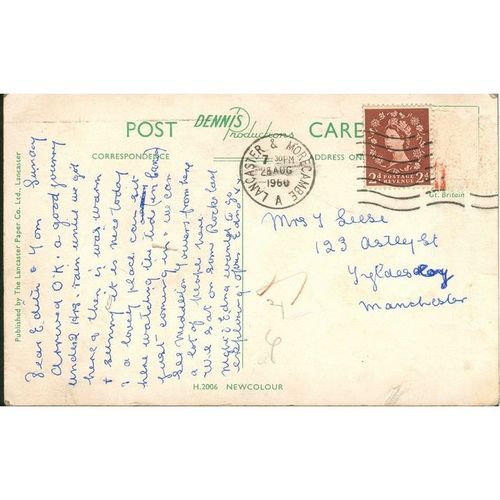 POST
DENNIS
Productions
CARD
CORRESPONDENCE
ADDRESS ONLY
Published by The Lancaster Paper Co. Ltd., Lancaster
Sunday
Dear Edith & Tom
Arrived O.K. a good journey
under 2 hrs. rain until we got
here, then it was warm
& sunny it is nice today
is a lovely place can sit
here watching the tide (in bay)
just coming in & we can
see Heddleston Towers from here
a lot of people here
We sit on some Rocks last
night Edna wanted to go
exploring again Edna x
LANCASTER & MORECAMBE
7 30PM
28 AUG
1960
A
2d POSTAGE REVENUE 2d
Gt. Britain
Mrs T Leese
123 Astley St
Manchester
H.2006 NEWCOLOUR